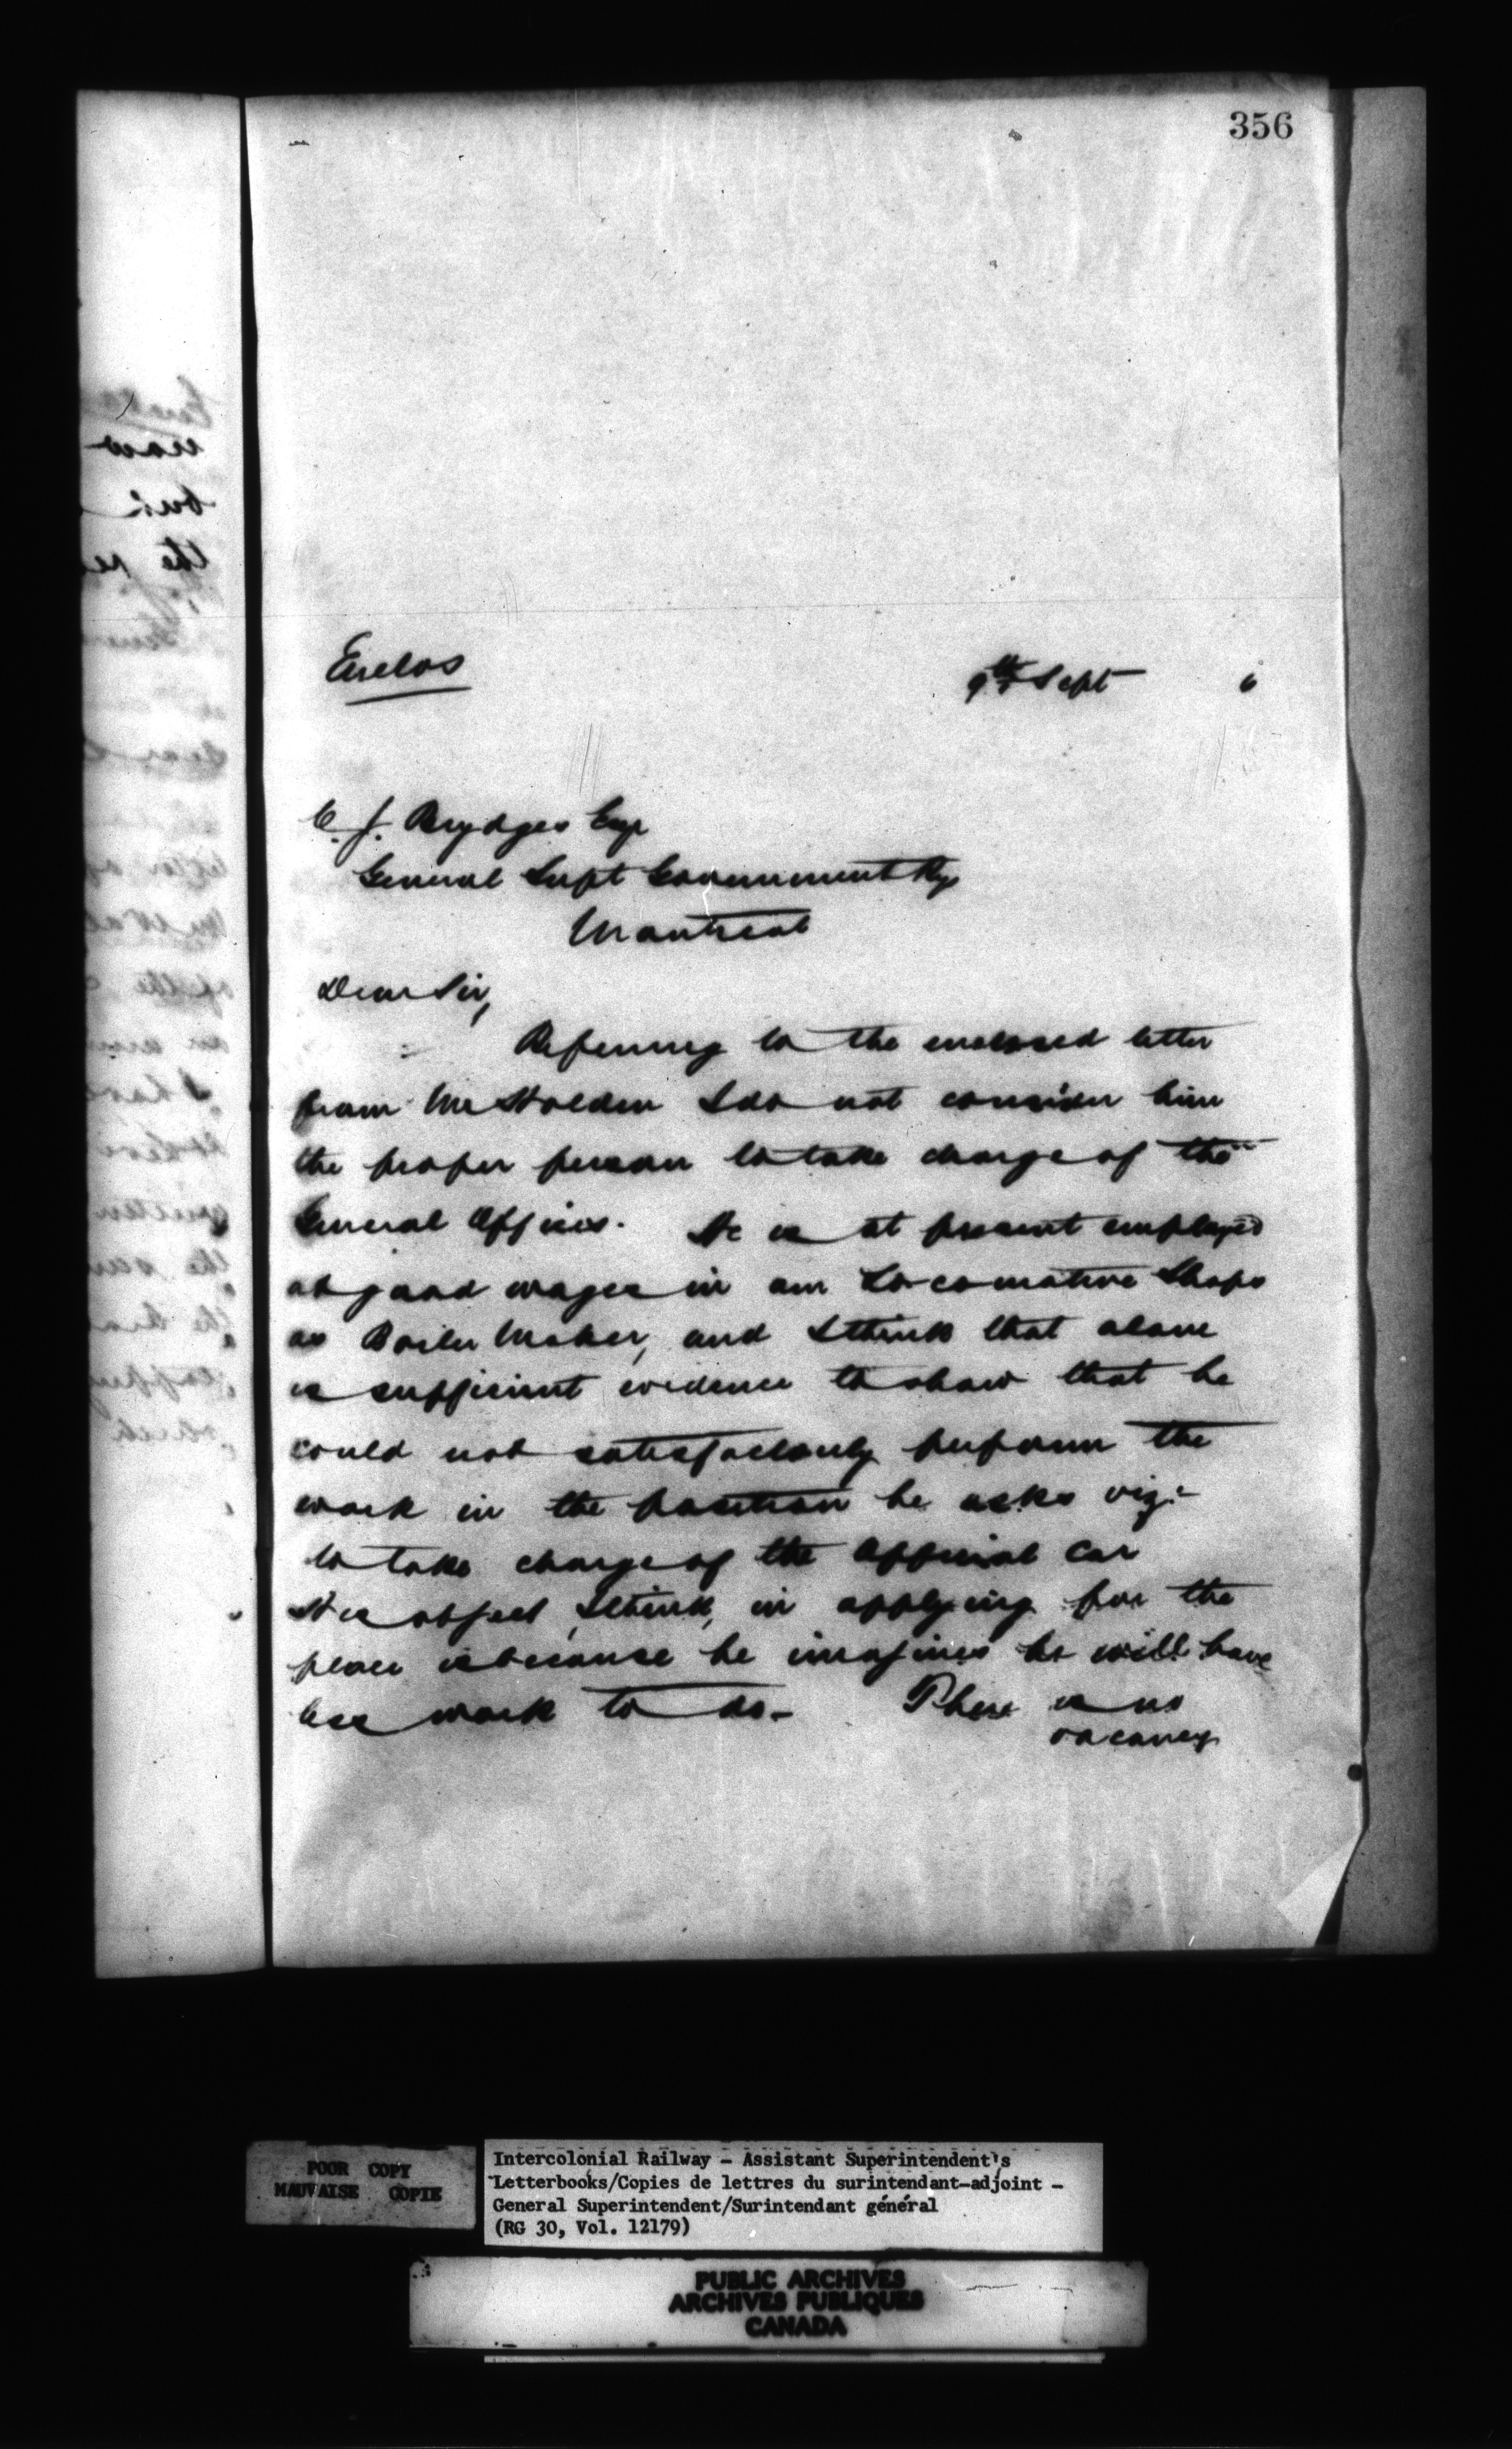 356
Enclos
9th Sept 6
C. J. Brydges Esqr
General Supt Government Rys
Montreal
Dear Sir,
Referring to the enclosed letter
from Mr Holden I do not consider him
the proper person to take charge of the
General Offices. He is at present employed
at good wages in our Locomotive Shops
as Boiler Maker, and I think that alone
is sufficient evidence to show that he
could not satisfactorily perform the
work in the position he asks viz:-
to take charge of the Official Car
His object, I think, in applying for the
place is because he imagines he will have
less work to do- There is no
vacancy
POOR COPY
MAUVAISE COPIE
Intercolonial Railway - Assistant Superintendent's
Letterbooks/Copies de lettres du surintendant-adjoint -
General Superintendent/Surintendant général
(RG 30, Vol. 12179)
PUBLIC ARCHIVES
ARCHIVES PUBLIQUES
CANADA